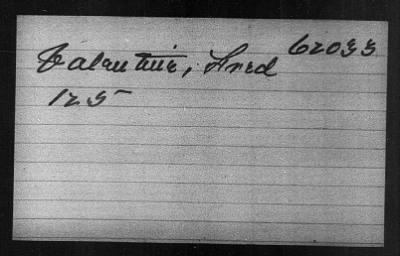 Valentine, Fred 62033
125